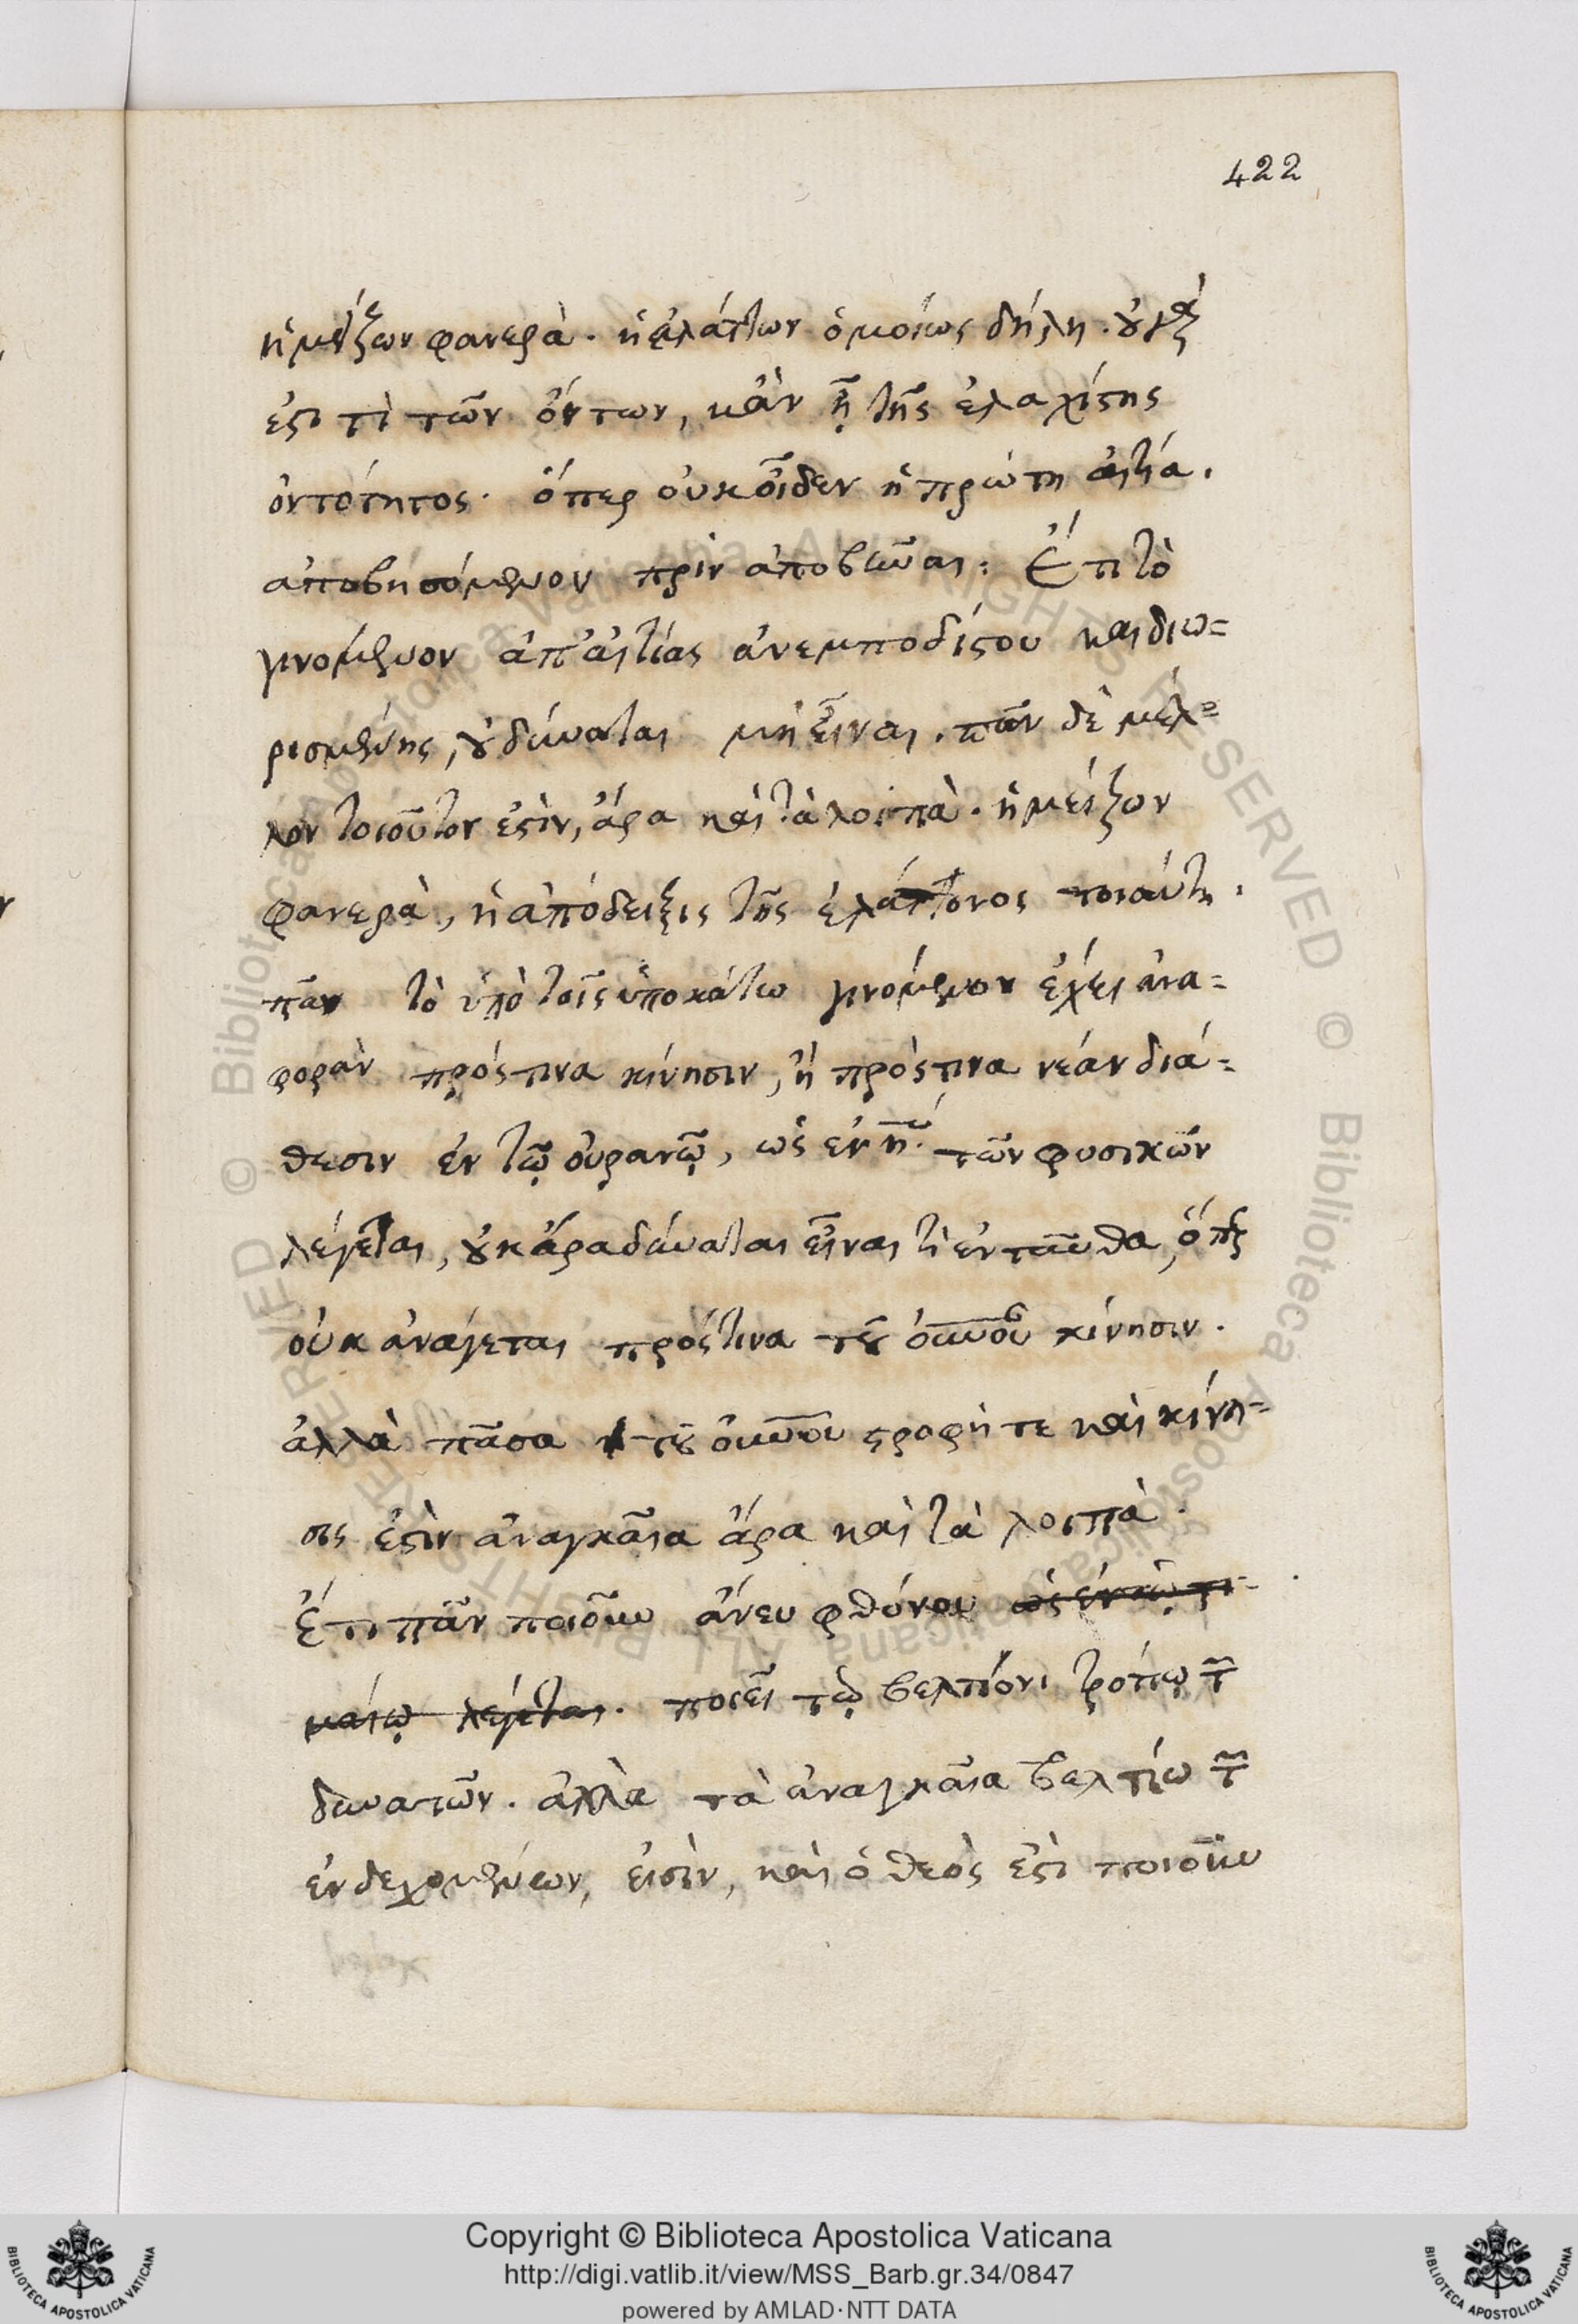 422
ἡ μείζων φανερὰ. ἡ ἐλάττων ὁμοίως δήλη. οὐ γάρ
ἐστι τὶ τῶν ὄντων, κἂν ᾖ τῆς ἐλαχίστης
ὀντότητος. ὅπερ οὐκ οἶδεν ἡ πρώτη αἰτία.
ἀποβησόμενον πρὶν ἀποβῶναι: Ἔτι τὸ
γινόμενον ἀπ' αἰτίας ἀνεμποδίστου καὶ διω=
ρισμένης, οὐ δύναται μὴ εἶναι. πᾶν δὲ μέλ=
λον τοιοῦτον ἐστὶν, ἄρα καὶ τὰ λοιπὰ. ἡ μείζων
φανερὰ, ἡ ἀπόδειξις τῆς ἐλάττονος τοιαύτη.
πᾶν τὸ ὑπὸ τοῖς ὑποκάτω γινόμενον ἔχει ἀνα=
φορὰν πρός τινα κίνησιν, ἢ πρός τινα νέαν διά=
θεσιν ἐν τῷ οὐρανῷ, ὡς ἐν η. τῶν φυσικῶν
λέγεται, οὐκ ἄρα δύναται εἶναι τὶ ἐνταῦθα, ὅπερ
οὐκ ἀνάγεται πρός τινα τοῦ οὐνοῦ κίνησιν.
ἀλλὰ πᾶσα τοῦ οὐνοῦ στροφή τε καὶ κίνη=
σις ἐστὶν ἀναγκαῖα ἄρα καὶ τὰ λοιπὰ.
Ἔτι πᾶν ποιοῦν ἄνευ φθόνου ὡς ἐν τῷ τι=
μαίῳ λέγεται. ποιεῖ τῷ βελτίονι τρόπῳ τῶν
δυνατῶν. ἀλλὰ τὰ ἀναγκαῖα βελτίω τῶν
ἐνδεχομένων, εἰσὶν, καὶ ὁ θεὸς ἐστὶ ποιοῦν
Copyright © Biblioteca Apostolica Vaticana
http://digi.vatlib.it/view/MSS_Barb.gr.34/0847
powered by AMLAD·NTT DATA